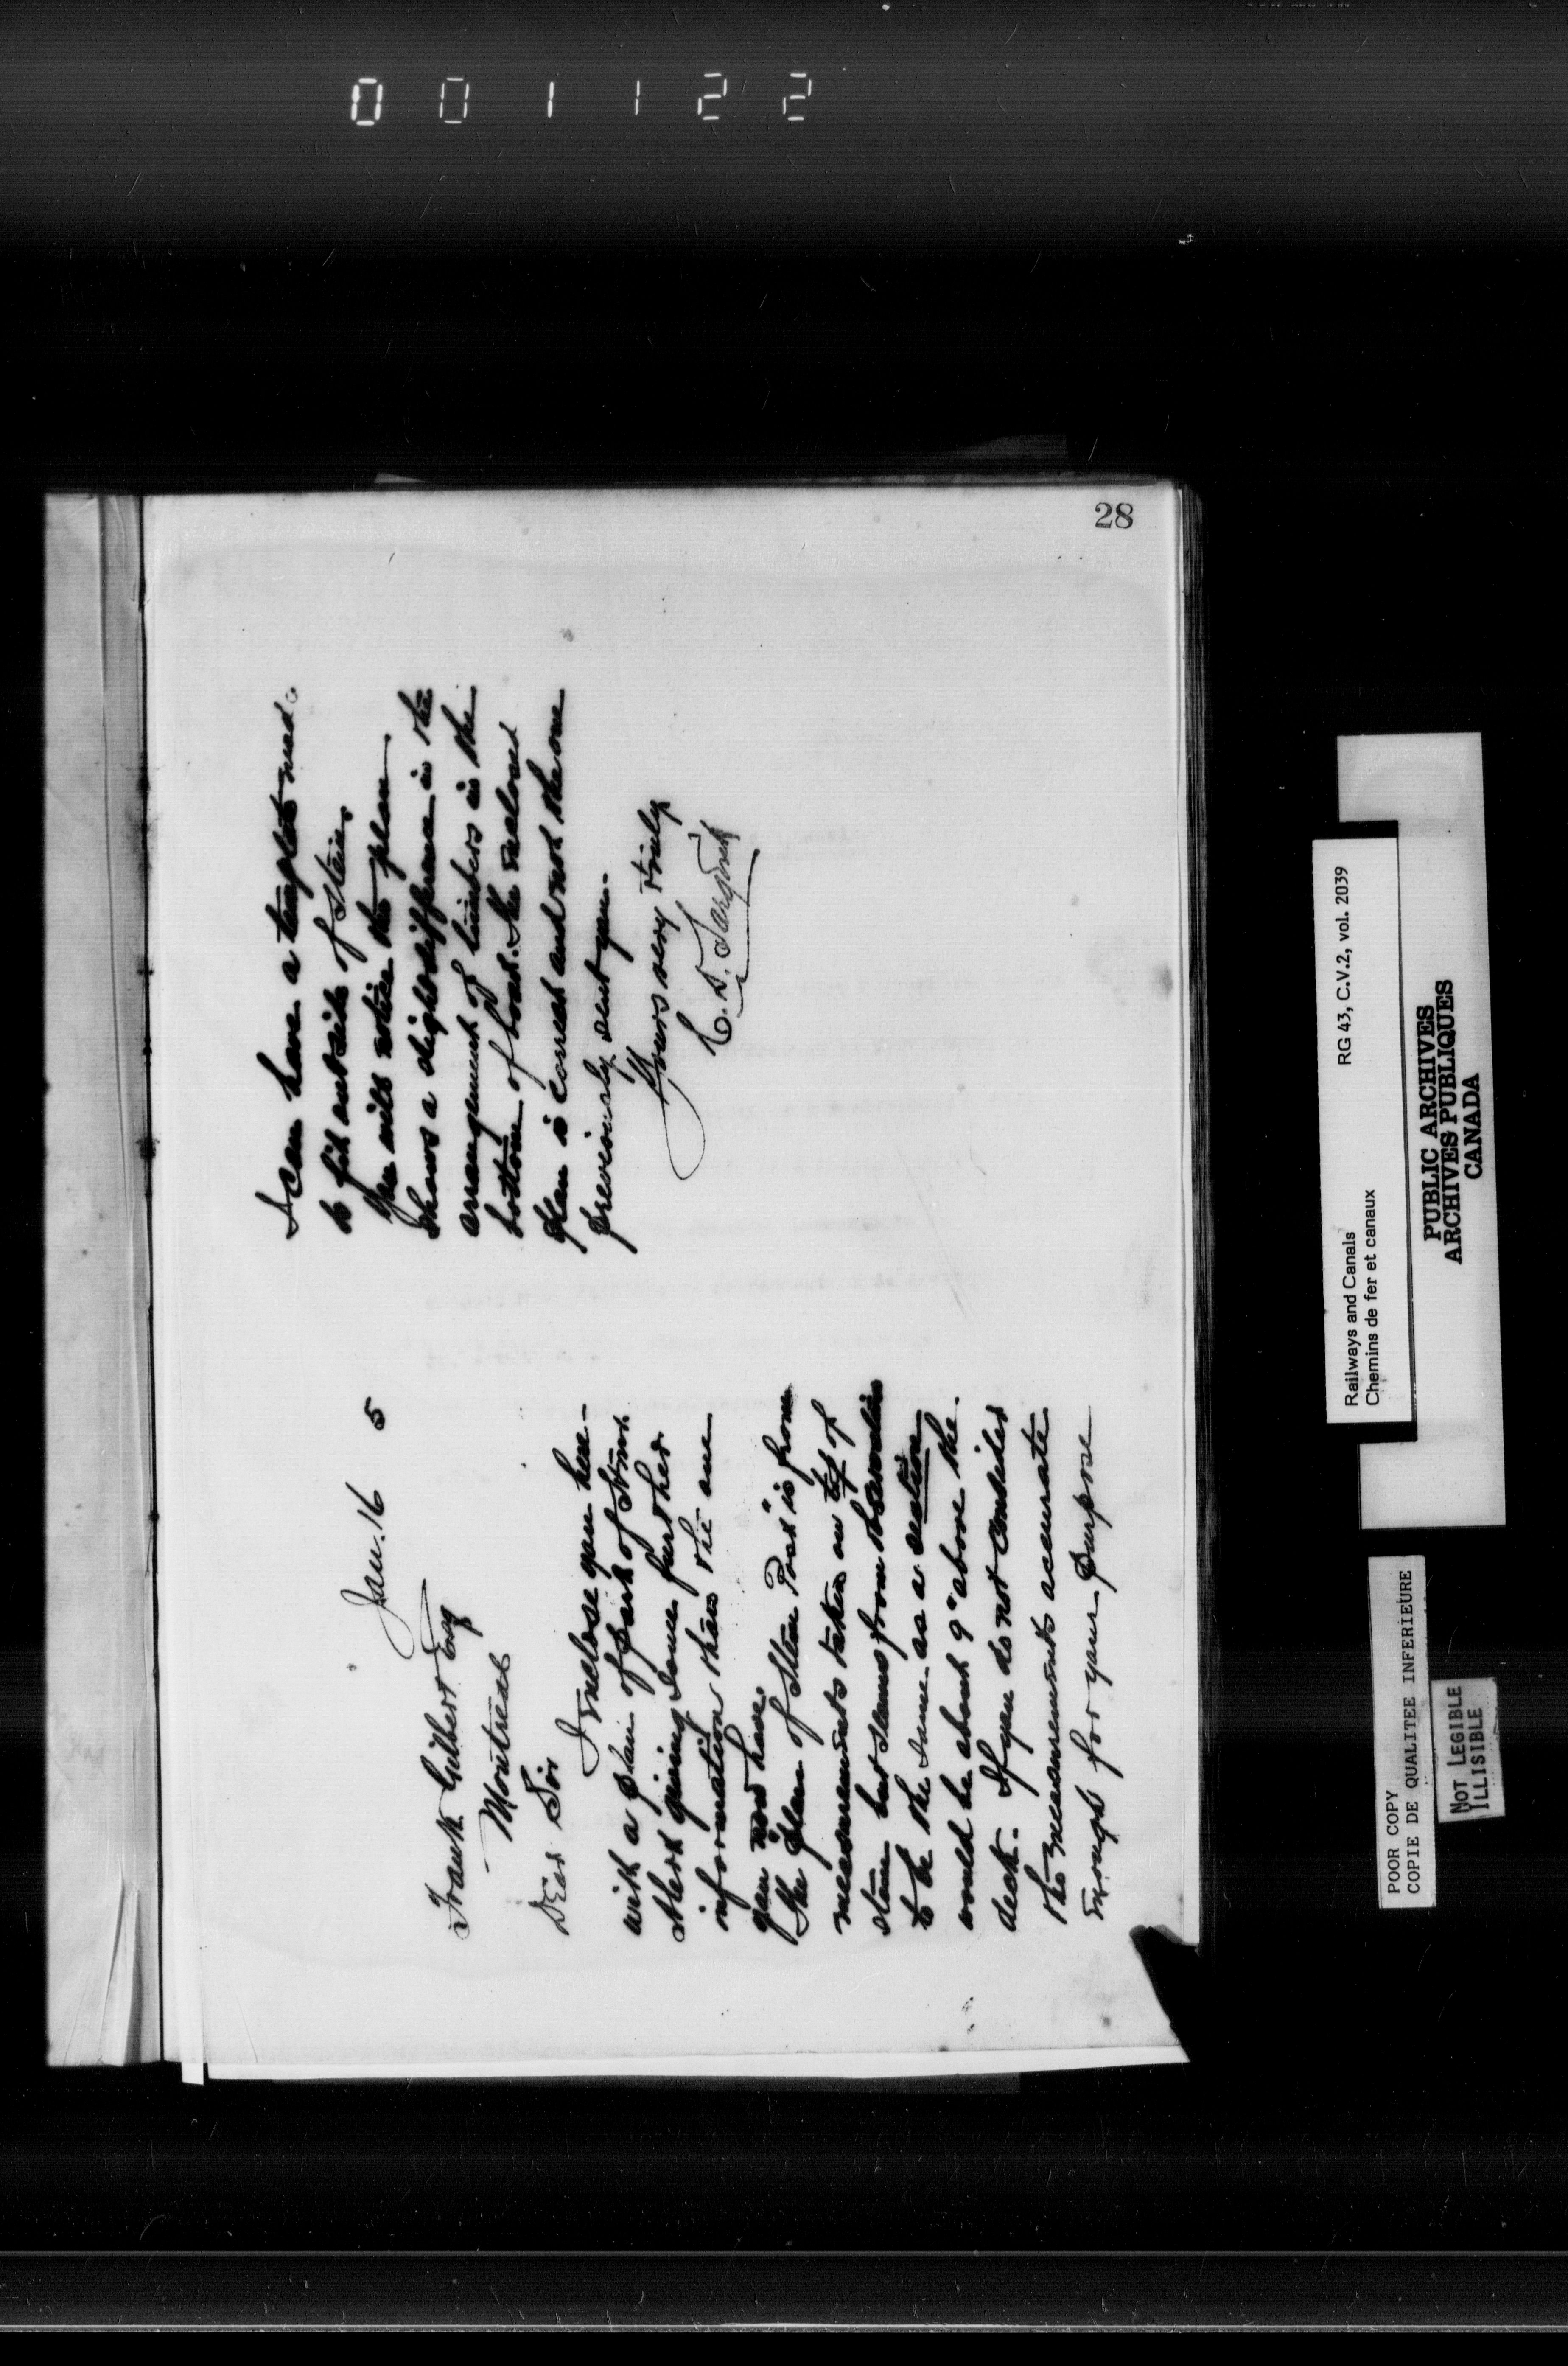 001122
28
Jan. 16 5
Frank Gilbert Esq
Montreal
Dear Sir
I enclose you here-
with a plan of part of Stmr.
Albert giving some further
information than the one
you now have.
The plan of "Stem Post" is from
measurements taken on top of
stem but seems from
to be the same as a section
would be about 9" above the
deck. If you do not consider
the measurements accurate
enough for your purpose
I can have a templet made
to fit outside of Stem.
You will notice the plan
shows a slight difference in the
arrangement of timbers in the
bottom of boat. The enclosed
plan is correct and not the one
previously sent you.
Yours very truly
C. D. Sargent
Railways and Canals RG 43, C.V.2, vol. 2039
Chemins de fer et canaux
PUBLIC ARCHIVES
ARCHIVES PUBLIQUES
CANADA
POOR COPY
COPIE DE QUALITEE INFERIEURE
NOT LEGIBLE
ILLISIBLE